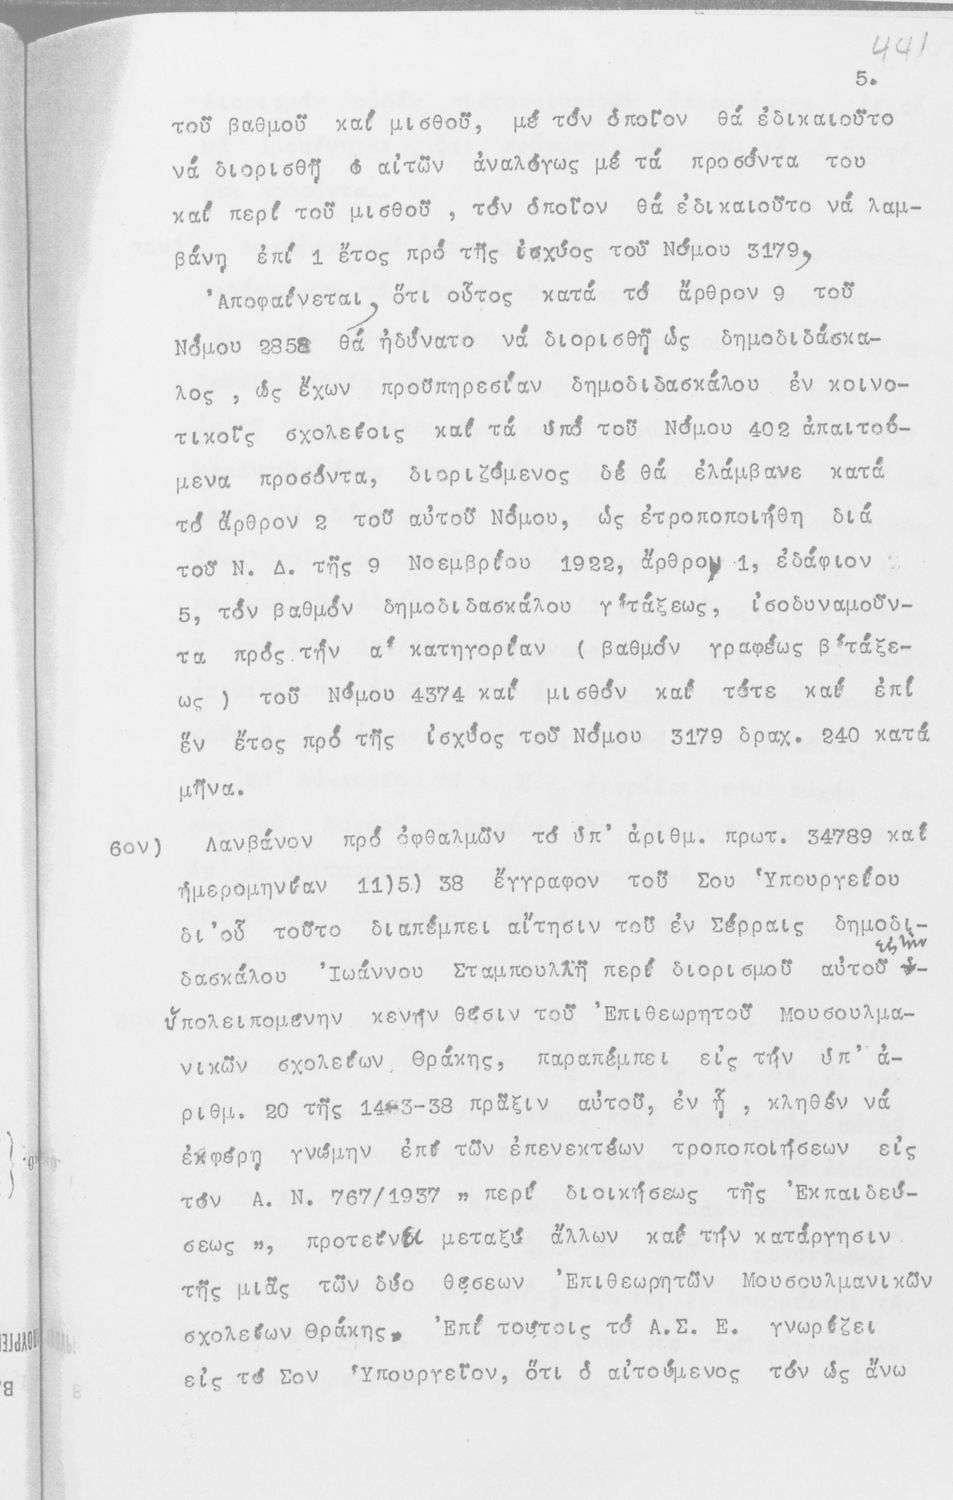 441
5.
τοῦ βαθμοῦ καί μισθοῦ, μέ τόν ὁποῖον θά ἐδικαιοῦτο
νά διορισθῇ ὁ αἰτῶν ἀναλόγως μέ τά προσόντα του
καί περί τοῦ μισθοῦ , τόν ὁποῖον θά ἐδικαιοῦτο νά λαμ-
βάνῃ ἐπί 1 ἔτος πρό τῆς ἰσχύος τοῦ Νόμου 3179,
Ἀποφαίνεται, ὅτι οὗτος κατά τό ἄρθρον 9 τοῦ
Νόμου 2858 θά ἠδύνατο νά διορισθῇ ὡς δημοδιδάσκα-
λος , ὡς ἔχων προϋπηρεσίαν δημοδιδασκάλου ἐν κοινο-
τικοῖς σχολείοις καί τά ὑπό τοῦ Νόμου 402 ἀπαιτού-
μενα προσόντα, διοριζόμενος δέ θά ἐλάμβανε κατά
τό ἄρθρον 2 τοῦ αὐτοῦ Νόμου, ὡς ἐτροποποιήθη διά
τοῦ Ν. Δ. τῆς 9 Νοεμβρίου 1922, ἄρθρον 1, ἐδάφιον
5, τόν βαθμόν δημοδιδασκάλου γ'τάξεως, ἰσοδυναμοῦν-
τα πρός τήν α' κατηγορίαν ( βαθμόν γραφέως β'τάξε-
ως ) τοῦ Νόμου 4374 καί μισθόν καί τότε καί ἐπί
ἕν ἔτος πρό τῆς ἰσχύος τοῦ Νόμου 3179 δραχ. 240 κατά
μῆνα.
6ον) Λανβάνον πρό ὀφθαλμῶν τό ὑπ' ἀριθμ. πρωτ. 34789 καί
ἡμερομηνίαν 11)5) 38 ἔγγραφον τοῦ Σου Ὑπουργείου
δι'οὗ τοῦτο διαπέμπει αἴτησιν τοῦ ἐν Σέρραις δημοδι-
δασκάλου Ἰωάννου Σταμπουλλῆ περί διορισμοῦ αὐτοῦ εἰς τήν
ὑπολειπομένην κενήν θέσιν τοῦ Ἐπιθεωρητοῦ Μουσουλμα-
νικῶν σχολείων Θράκης, παραπέμπει εἰς τήν ὑπ' ἀ-
ριθμ. 20 τῆς 14-3-38 πρᾶξιν αὐτοῦ, ἐν ᾗ , κληθέν νά
ἐκφέρῃ γνώμην ἐπί τῶν ἐπενεκτέων τροποποιήσεων εἰς
τόν Α. Ν. 767/1937 " περί διοικήσεως τῆς Ἐκπαιδεύ-
σεως ", προτείνει μεταξύ ἄλλων καί τήν κατάργησιν
τῆς μιᾶς τῶν δύο θέσεων Ἐπιθεωρητῶν Μουσουλμανικῶν
σχολείων Θράκης. Ἐπί τούτοις τό Α.Σ. Ε. γνωρίζει
εἰς τό Σον Ὑπουργεῖον, ὅτι ὁ αἰτούμενος τόν ὡς ἄνω